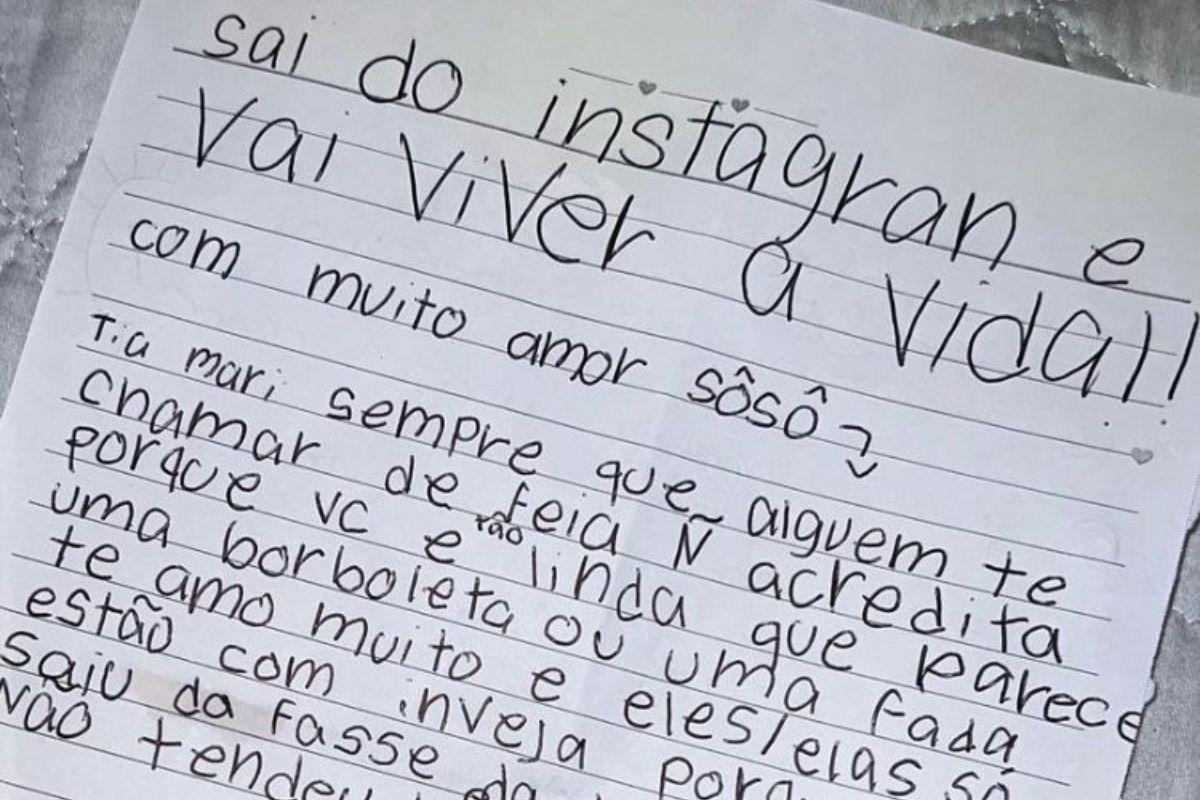 sai do instagran e
Vai Viver a Vida!!
com muito amor sôsô
Tia mari sempre que alguem te
chamar de feia Ñ acredita
porque vc e tão linda que parece
uma borboleta ou uma fada
te amo muito e eles/elas só
estão com inveja
saiu da fasse da
Não